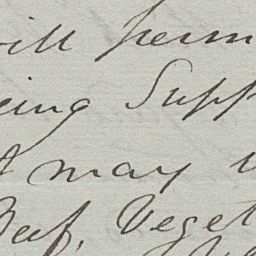 will perm
eing Supp
may
Beef, Veget